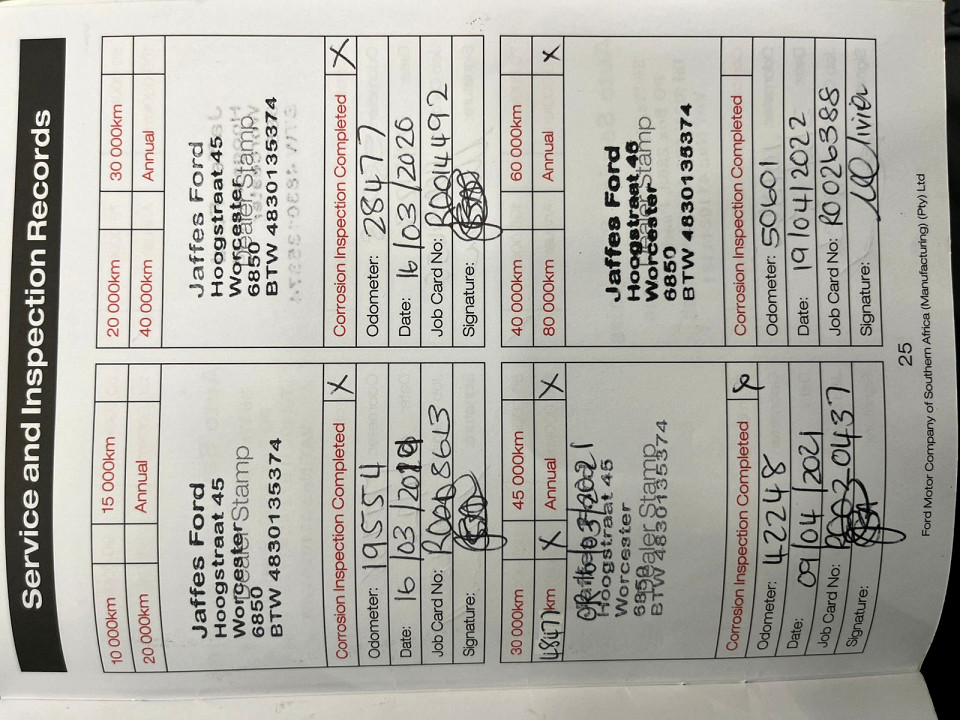 Service and Inspection Records
10 000km 15 000km
20 000km Annual
Jaffes Ford
Hoogstraat 45
Worcester
Dealer Stamp
6850
BTW 4830135374
Corrosion Inspection Completed X
Odometer: 19554
Date: 16/03/2019
Job Card No: R0008613
Signature:
20 000km 30 000km
40 000km Annual
Jaffes Ford
Hoogstraat 45
Worcester
Dealer Stamp
6850
BTW 4830135374
Corrosion Inspection Completed X
Odometer: 28477
Date: 16/03/2020
Job Card No: R0014492
Signature:
30 000km 45 000km
48477 km X Annual X
OR 16/03/2021
Hoogstraat 45
Worcester
Dealer Stamp
6850
BTW 4830135374
Corrosion Inspection Completed
Odometer: 42248
Date: 09/04/2021
Job Card No: R002-0437
Signature:
40 000km 60 000km
80 000km Annual X
Jaffes Ford
Hoogstraat 45
Worcester
Dealer Stamp
6850
BTW 4830135374
Corrosion Inspection Completed
Odometer: 50601
Date: 19/04/2022
Job Card No: R0026388
Signature:
25
Ford Motor Company of Southern Africa (Manufacturing) (Pty) Ltd